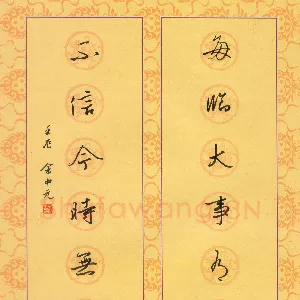 每臨大事有
不信今時無
壬辰